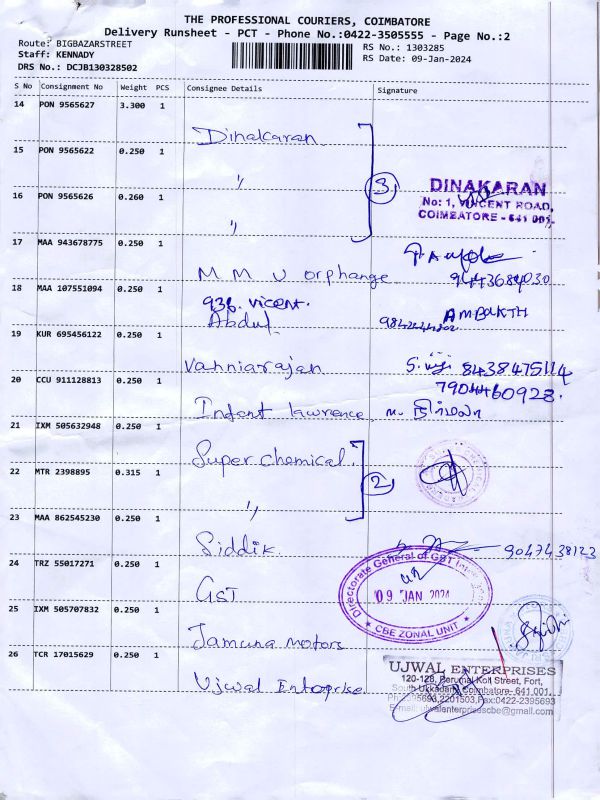 THE PROFESSIONAL COURIERS, COIMBATORE
Delivery Runsheet - PCT - Phone No.:0422-3505555 - Page No.:2
Route: BIGBAZARSTREET
Staff: KENNADY
DRS No.: DCJB130328502
RS No.: 1303285
RS Date: 09-Jan-2024
S No Consignment No Weight PCS Consignee Details Signature
14 PON 9565627 3.300 1
Dinakaran
15 PON 9565622 0.250 1
"
3
DINAKARAN
No: 1, VINCENT ROAD,
COIMBATORE - 641 001.
16 PON 9565626 0.260 1
"
17 MAA 943678775 0.250 1
M M U orphange
18 MAA 107551094 0.250 1
936. vicent.
Abdul
AMBAKTH
19 KUR 695456122 0.250 1
Vanniarajan
8438475114
7904460928.
20 CCU 911128813 0.250 1
Infent lawrence
21 IXM 505632948 0.250 1
Super chemical
22 MTR 2398895 0.315 1
"
2
23 MAA 862545230 0.250 1
Siddik
9047438123
24 TRZ 55017271 0.250 1
GST
Directorate General of GST
09 JAN 2024
★ CBE ZONAL UNIT ★
25 IXM 505707832 0.250 1
Jamuna motors
26 TCR 17015629 0.250 1
Ujwal Enteoprise
UJWAL ENTERPRISES
120-126, Perumal Koil Street, Fort,
South Ukkadam, Coimbatore- 641 001.
2201503,Fax:0422-2395693
E-mail: ujwalenterprisescbe@gmail.com